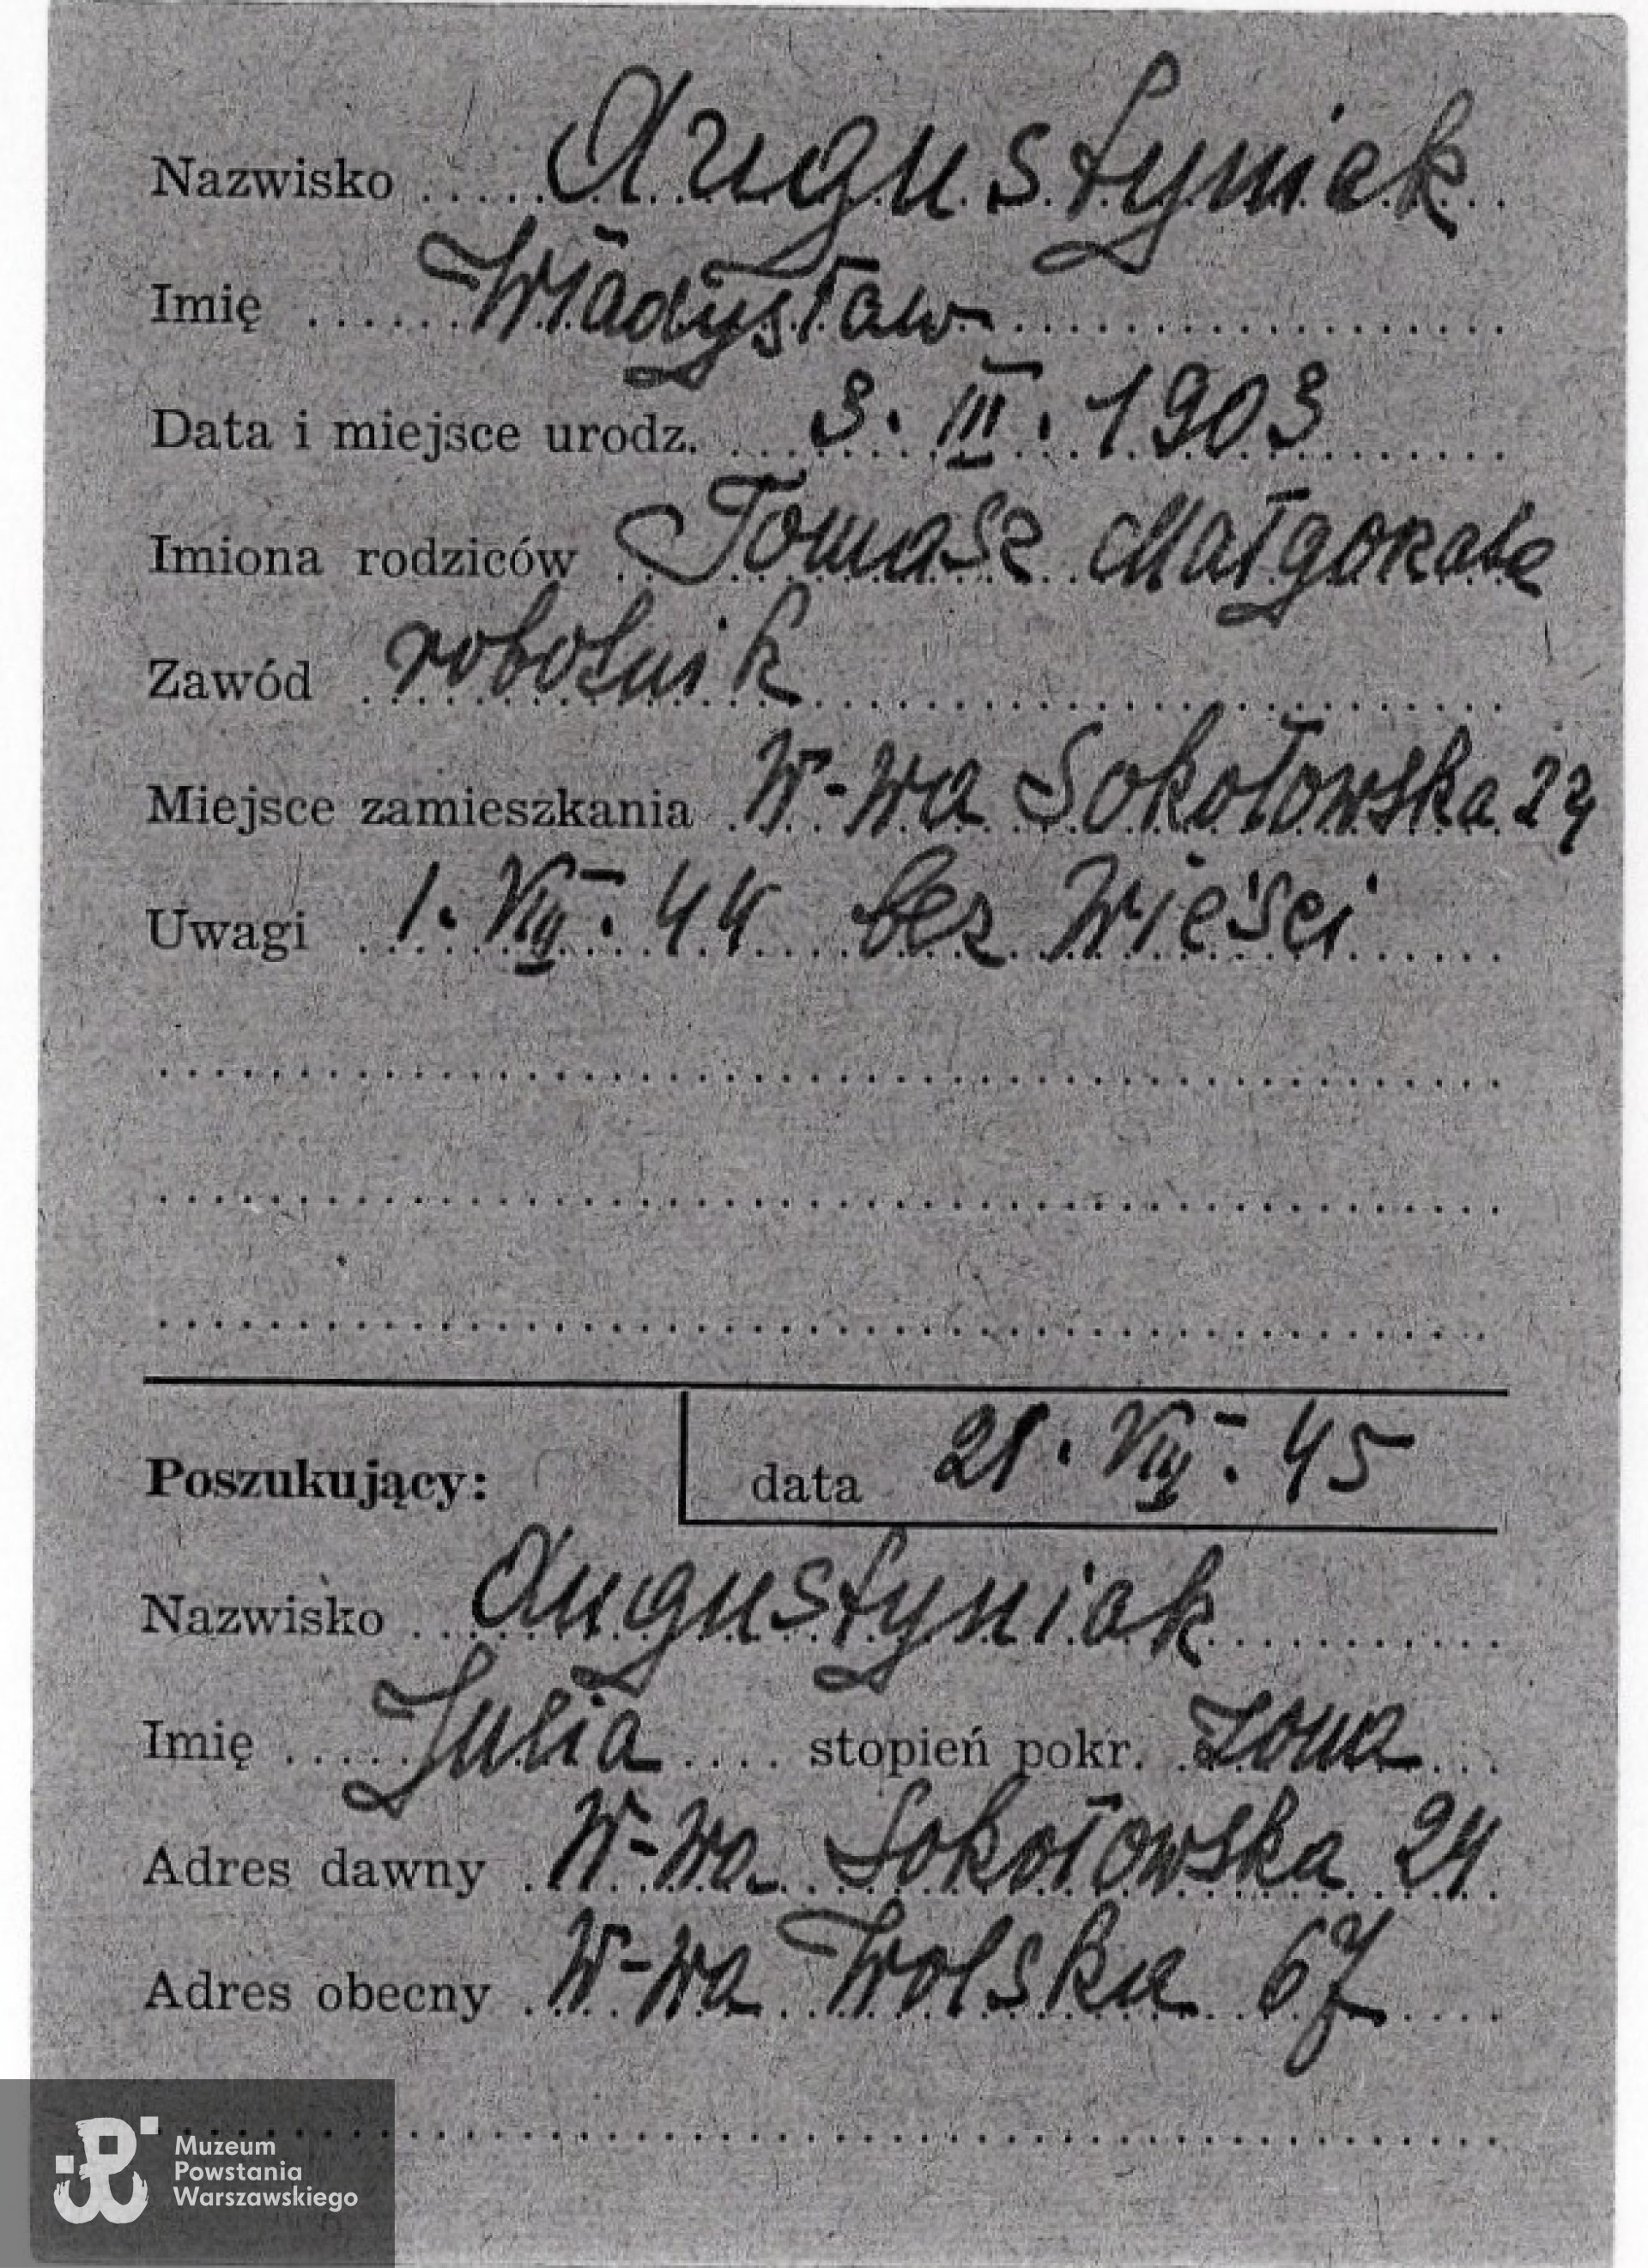 Nazwisko Augustyniak
Imię Władysław
Data i miejsce urodz. 3. III. 1903
Imiona rodziców Tomasz Małgorzata
Zawód robotnik
Miejsce zamieszkania W-wa Sokołowska 24
Uwagi 1. VIII. 44 bez wieści
Poszukujący: data 21. VIII. 45
Nazwisko Augustyniak
Imię Julia stopień pokr. żona
Adres dawny W-wa Sokołowska 24
Adres obecny W-wa Wolska 67
Muzeum
Powstania
Warszawskiego